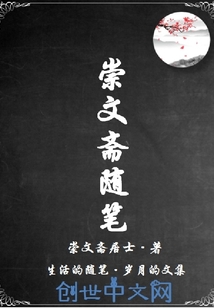 崇文斋随笔
崇文斋居士·著
生活的随笔·岁月的文集
创世中文网